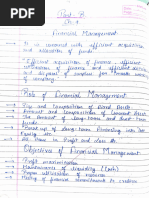 Part-B
Ch-1
Financial Management
It is concerned with efficient acquisition
allocation of funds
"Efficient acquisition of finance, efficient
utilisation of finance and efficient
and disposal of surplus for smooth working
of company."
Role of Financial Management
Size and Composition of Fixed Assets.
Amount and Composition of Current assets
The Amount of Long-term and Short-term
funds.
Break-up of Long-term Financing into
Equity etc.
All Items in Profit and Loss A/c
Objectives of Financial Management
Profit maximisation
Maintenance of liquidity
Proper utilisation of
Meeting of financial commitments to creditors